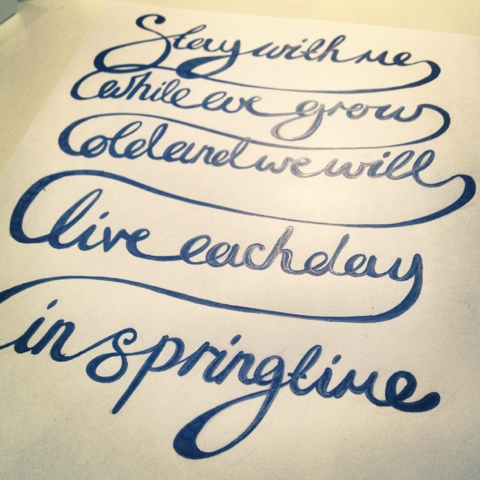 Stay with me
while we grow
old and we will
live each day
in springtime